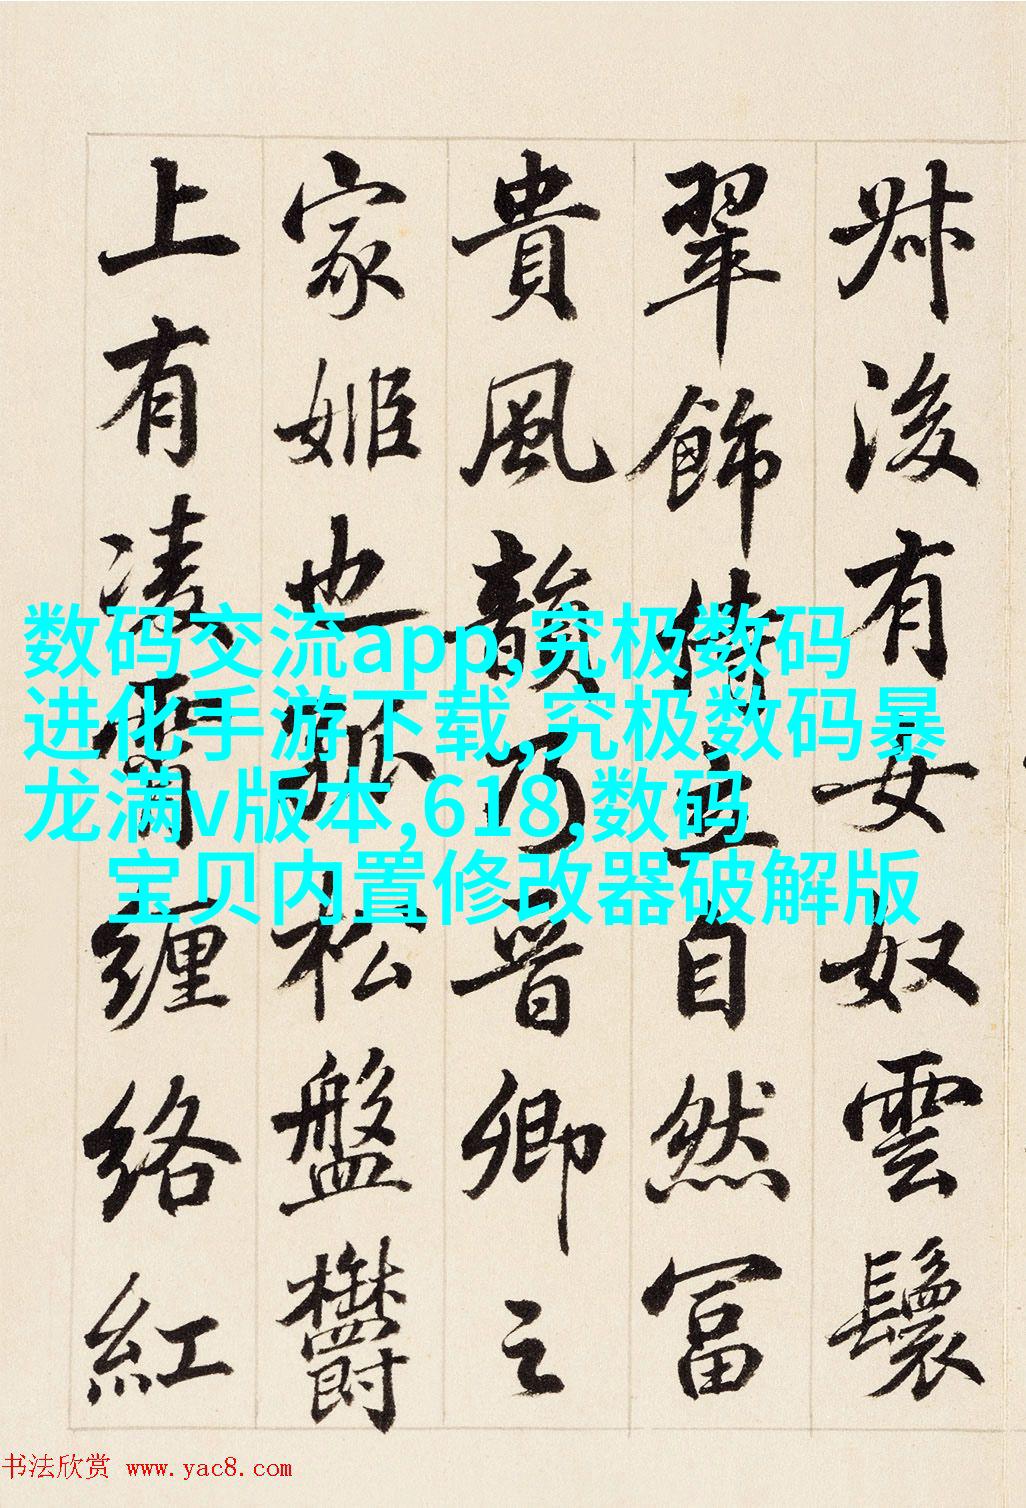 叔後有女奴雲鬟
翠飾倚立自然富
貴風韻乃晉卿之
家姬也孤松盤鬱
上有凌霄纏絡紅
数码交流app,究极数码
进化手游下载,究极数码暴
龙满v版本,618,数码
宝贝内置修改器破解版
书法欣赏 www.yac8.com